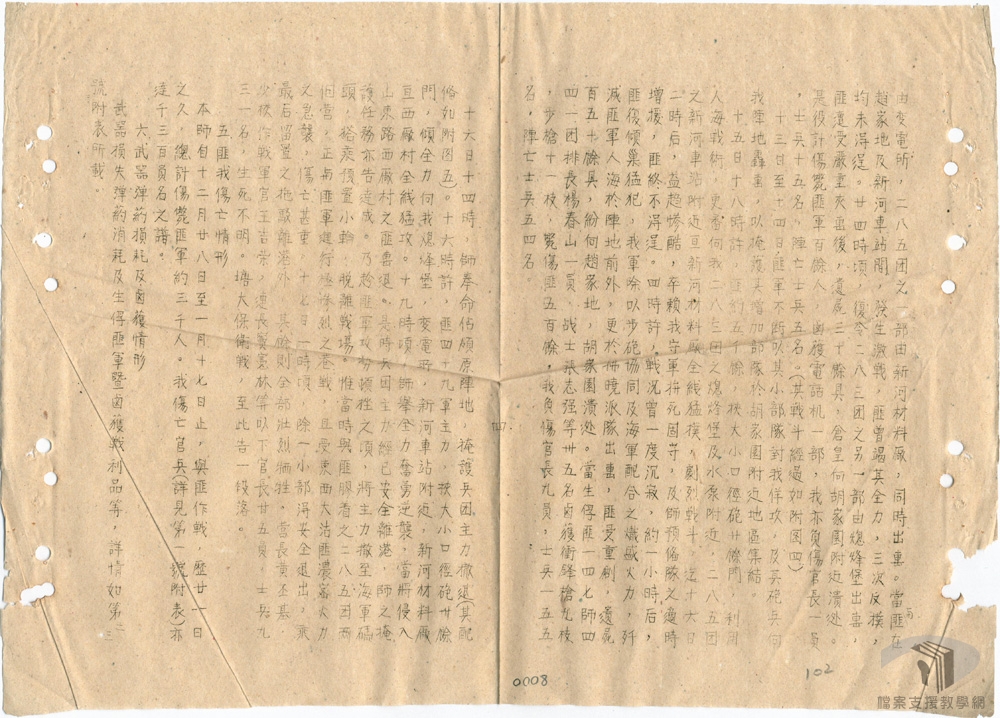 由变電所，二八五团之一部由新河材料厰，同時出擊。當匪在
趙家地及新河車站間，發生激戰，匪曾竭其全力，三次反撲，
均未得逞。廿四時頃，復令二八三团之另一部由熄烽堡出擊，
匪遭受嚴重夾击後，遺屍三十餘具，倉皇向胡家園附近潰退。
是役計傷斃匪軍百餘人，鹵獲電話机一部，我亦負傷官長一員
，士兵十五名，陣亡士兵五名。(其戰斗經過如附图四)
十三日至十四日匪軍不断以其小部隊對我佯攻，及以砲兵向
我陣地轟擊，以掩護其增加部隊於胡家園附近地區集結。
十五日十八時許，匪約五千餘，挾大小口徑砲廿餘門，利用
人海戰術，更番向我二八三团之熄烽堡及水泵附近，二八五团
之新河車站附近亘新河材料厰全線猛撲，劇烈戰斗，迄十六日
二時后，益趋慘酷，卒賴我守軍拚死固守，及師預備隊之適時
增援，匪終不得逞。四時許，戰况曾一度沉寂，約一小時后，
匪復傾巢猛犯，我軍除以步砲協同及海軍配合之熾威火力，歼
滅匪軍人海於陣地前外，更於拂曉派隊出擊，匪受重創，遺屍
百五十餘具，紛向趙家地，胡家園潰退。當生俘匪一四七師四
四一团排長楊春山一員，战士張志强等廿五名鹵獲衝鋒槍九枝
，步槍十一枝，斃傷匪五百餘，我負傷官長九員，士兵一五五
名，陣亡士兵五四名。
四
十六日十四時，師奉命佔領原陣地，掩護兵团主力撤退(其配
備如附图五)。十六時許，匪四十九軍主力，挾大小口徑砲廿餘
門，傾全力向我熄烽堡，变電所，新河車站附近，新河材料厰
亘西厰村全線猛攻。十九時頃，師舉全力奮勇逆襲，當將侵入
山東路西厰村之匪擊退。是時兵团主力經已安全離港，師之掩
護任務亦告達成。乃趁匪軍攻势頓挫之頃，將主力撤至海軍碼
頭，搭乘預置小輪，脱離戰場。惟當時與匪膠着之二八五团两
個营，正與匪軍進行極慘烈之巷戰，且受東西大沽匪濃密火力
之急襲，傷亡甚重，十七日一時頃，除一小部得安全退出，乘
最后留置之拖駁離港外，其餘則全部壯烈牺牲。营長黄丕基，
少校作戰軍官王吉崇，連長冀憲林等以下官長廿五員，士兵九
三一名，生死不明。塘大保衛戰，至此告一段落。
五匪我傷亡情形
本師自十二月廿八日至一月十七日止，與匪作戰，歷廿一日
之久，總計傷斃匪軍約三千人。我傷亡官兵(詳見第一號附表)亦
達千三百員名之譜。
六武器彈約損耗及鹵獲情形
武器損失彈約消耗及生俘匪軍暨鹵獲戰利品等，詳情如第二三
號附表所載。
0008
102
檔案支援教學網